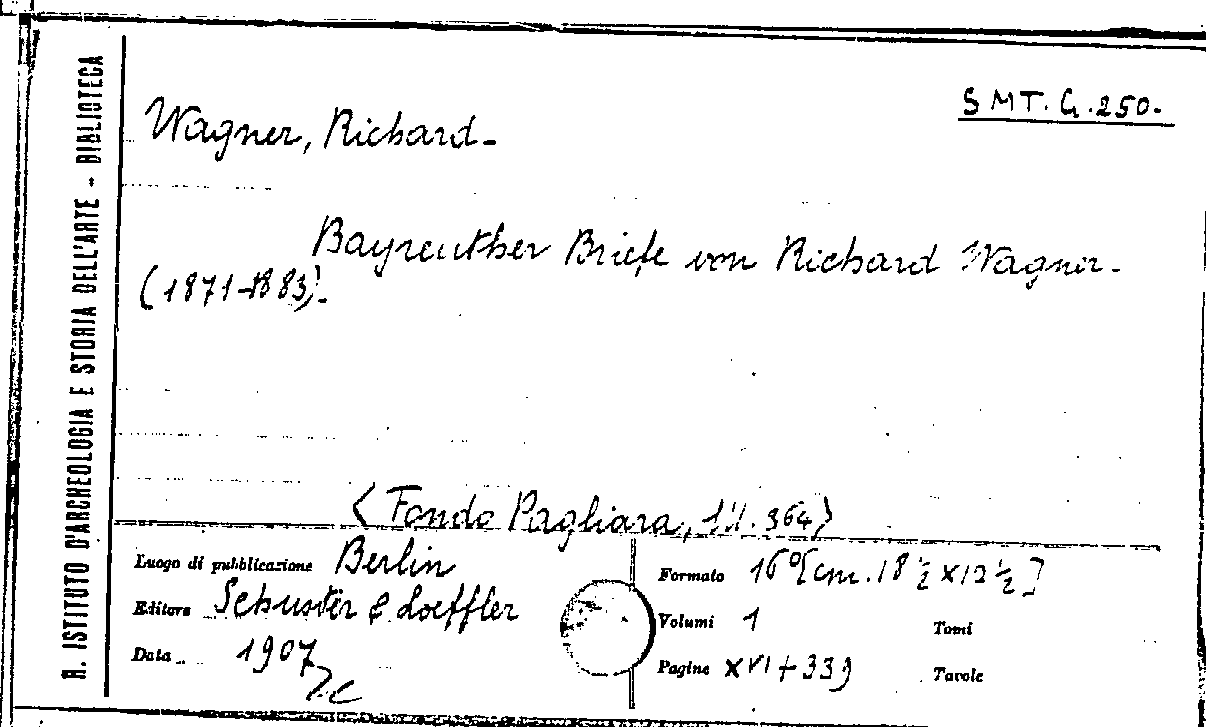 R. ISTITUTO D'ARCHEOLOGIA E STORIA DELL'ARTE - BIBLIOTECA
SMT. G. 250.
Wagner, Richard -
Bayreuther Briefe von Richard Wagner -
(1871-1883). -
<Fondo Pagliara, 364>
Luogo di pubblicazione Berlin
Editore Schuster & Loeffler
Data 1907
Formato 16° [cm. 18 ½ x 12 ½]
Volumi 1 Tomi
Pagine XVI + 339 Tavole